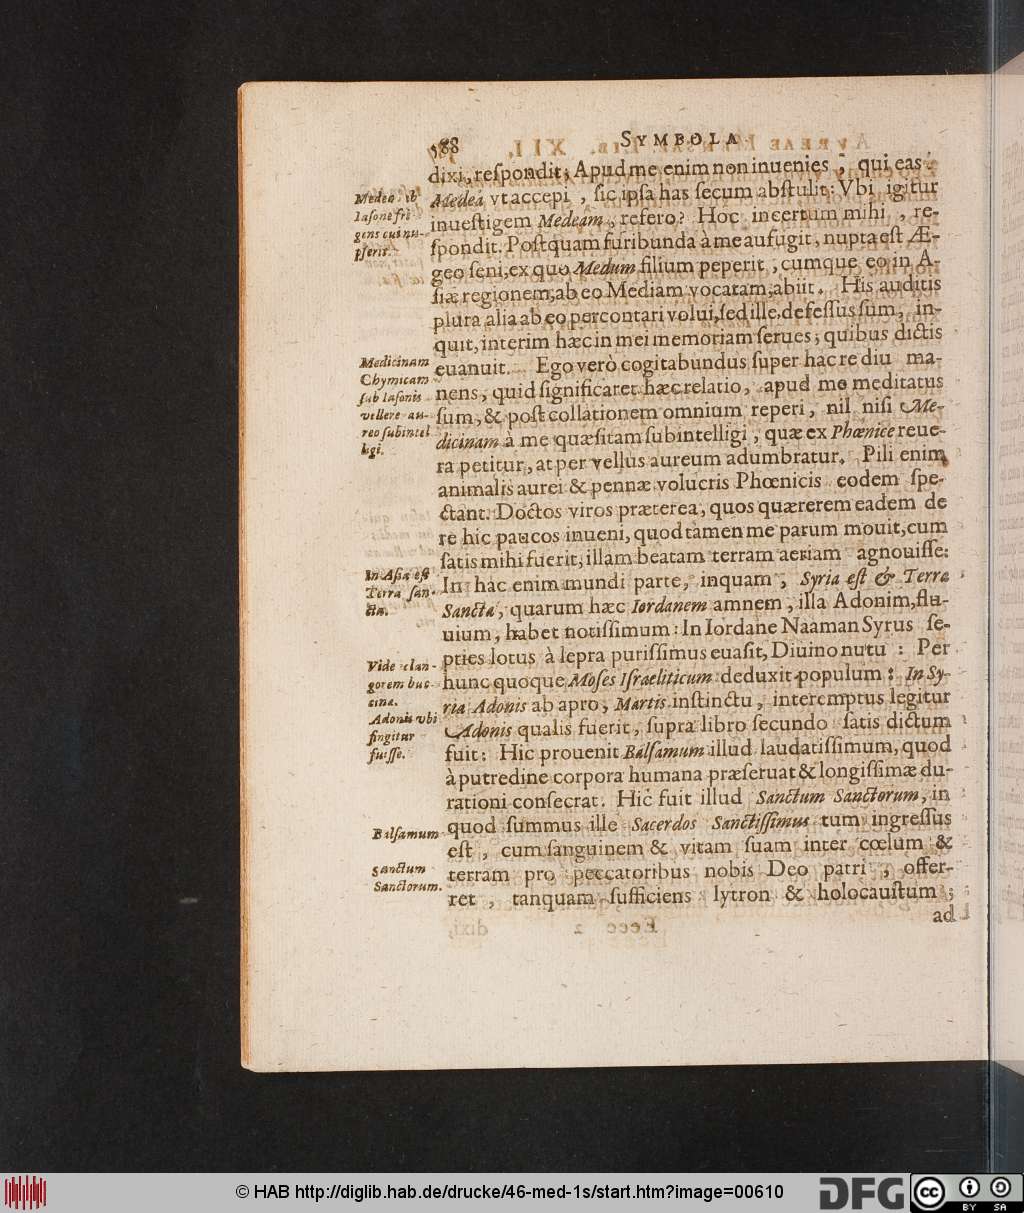 588 SYMBOLA
dixi, respondit; Apud me enim non inuenies, qui eas
Medea vt accepi, sic ipsa has secum abstulit: Vbi igitur
inuestigem Medeam, refero? Hoc incertum mihi, re-
spondit. Postquam furibunda à me aufugit, nupta est Æ-
geo seni, ex quo Medum filium peperit, cumque eo in A-
siæ regionem, ab eo Mediam vocatam, abiit. His auditis
plura alia ab eo percontari volui, sed ille, defessus sum, in-
quit, interim hæc in mei memoriam serues; quibus dictis
euanuit. Ego verò cogitabundus super hac re diu ma-
nens, quid significaret hæc relatio, apud me meditatus
sum, & post collationem omnium reperi, nil nisi Me-
dicinam à me quæsitam subintelligi, quæ ex Phœnice reue-
ra petitur, at per vellus aureum adumbratur. Pili enim
animalis aurei & pennæ volucris Phœnicis eodem spe-
ctant. Doctos viros præterea, quos quærerem eadem de
re hic paucos inueni, quod tamen me parum mouit, cum
satis mihi fuerit, illam beatam terram aeriam agnouisse:
In hac enim mundi parte, inquam, Syria est & Terra
Sancta, quarum hæc Iordanem amnem, illa Adonim, flu-
uium, habet notissimum: In Iordane Naaman Syrus se-
pties lotus à lepra purissimus euasit, Diuino nutu: Per
hunc quoque Moses Israeliticum deduxit populum: In Sy-
ria Adonis ab apro, Martis instinctu, interemptus legitur
Adonis qualis fuerit, supra libro secundo satis dictum
fuit: Hic prouenit Balsamum illud laudatissimum, quod
à putredine corpora humana præseruat & longissimæ du-
rationi consecrat. Hic fuit illud Sanctum Sanctorum, in
quod summus ille Sacerdos Sanctissimus tum ingressus
est, cum sanguinem & vitam suam inter cœlum &
terram pro peccatoribus nobis Deo patri, offer-
ret, tanquam sufficiens lytron & holocaustum;
ad
Medea ib
Iasone fri-
gens cui nu-
pserit.
Medicinam
Chymicam
sub Iasonis
vellere au-
reo subintel
ligi.
In Asia est
Terra san-
cta.
Vide clan-
gorem buc-
cina.
Adonis vbi
fingitur
fuisse.
Balsamum
Sanctum
Sanctorum.
© HAB http://diglib.hab.de/drucke/46-med-1s/start.htm?image=00610
DFG
cc BY SA